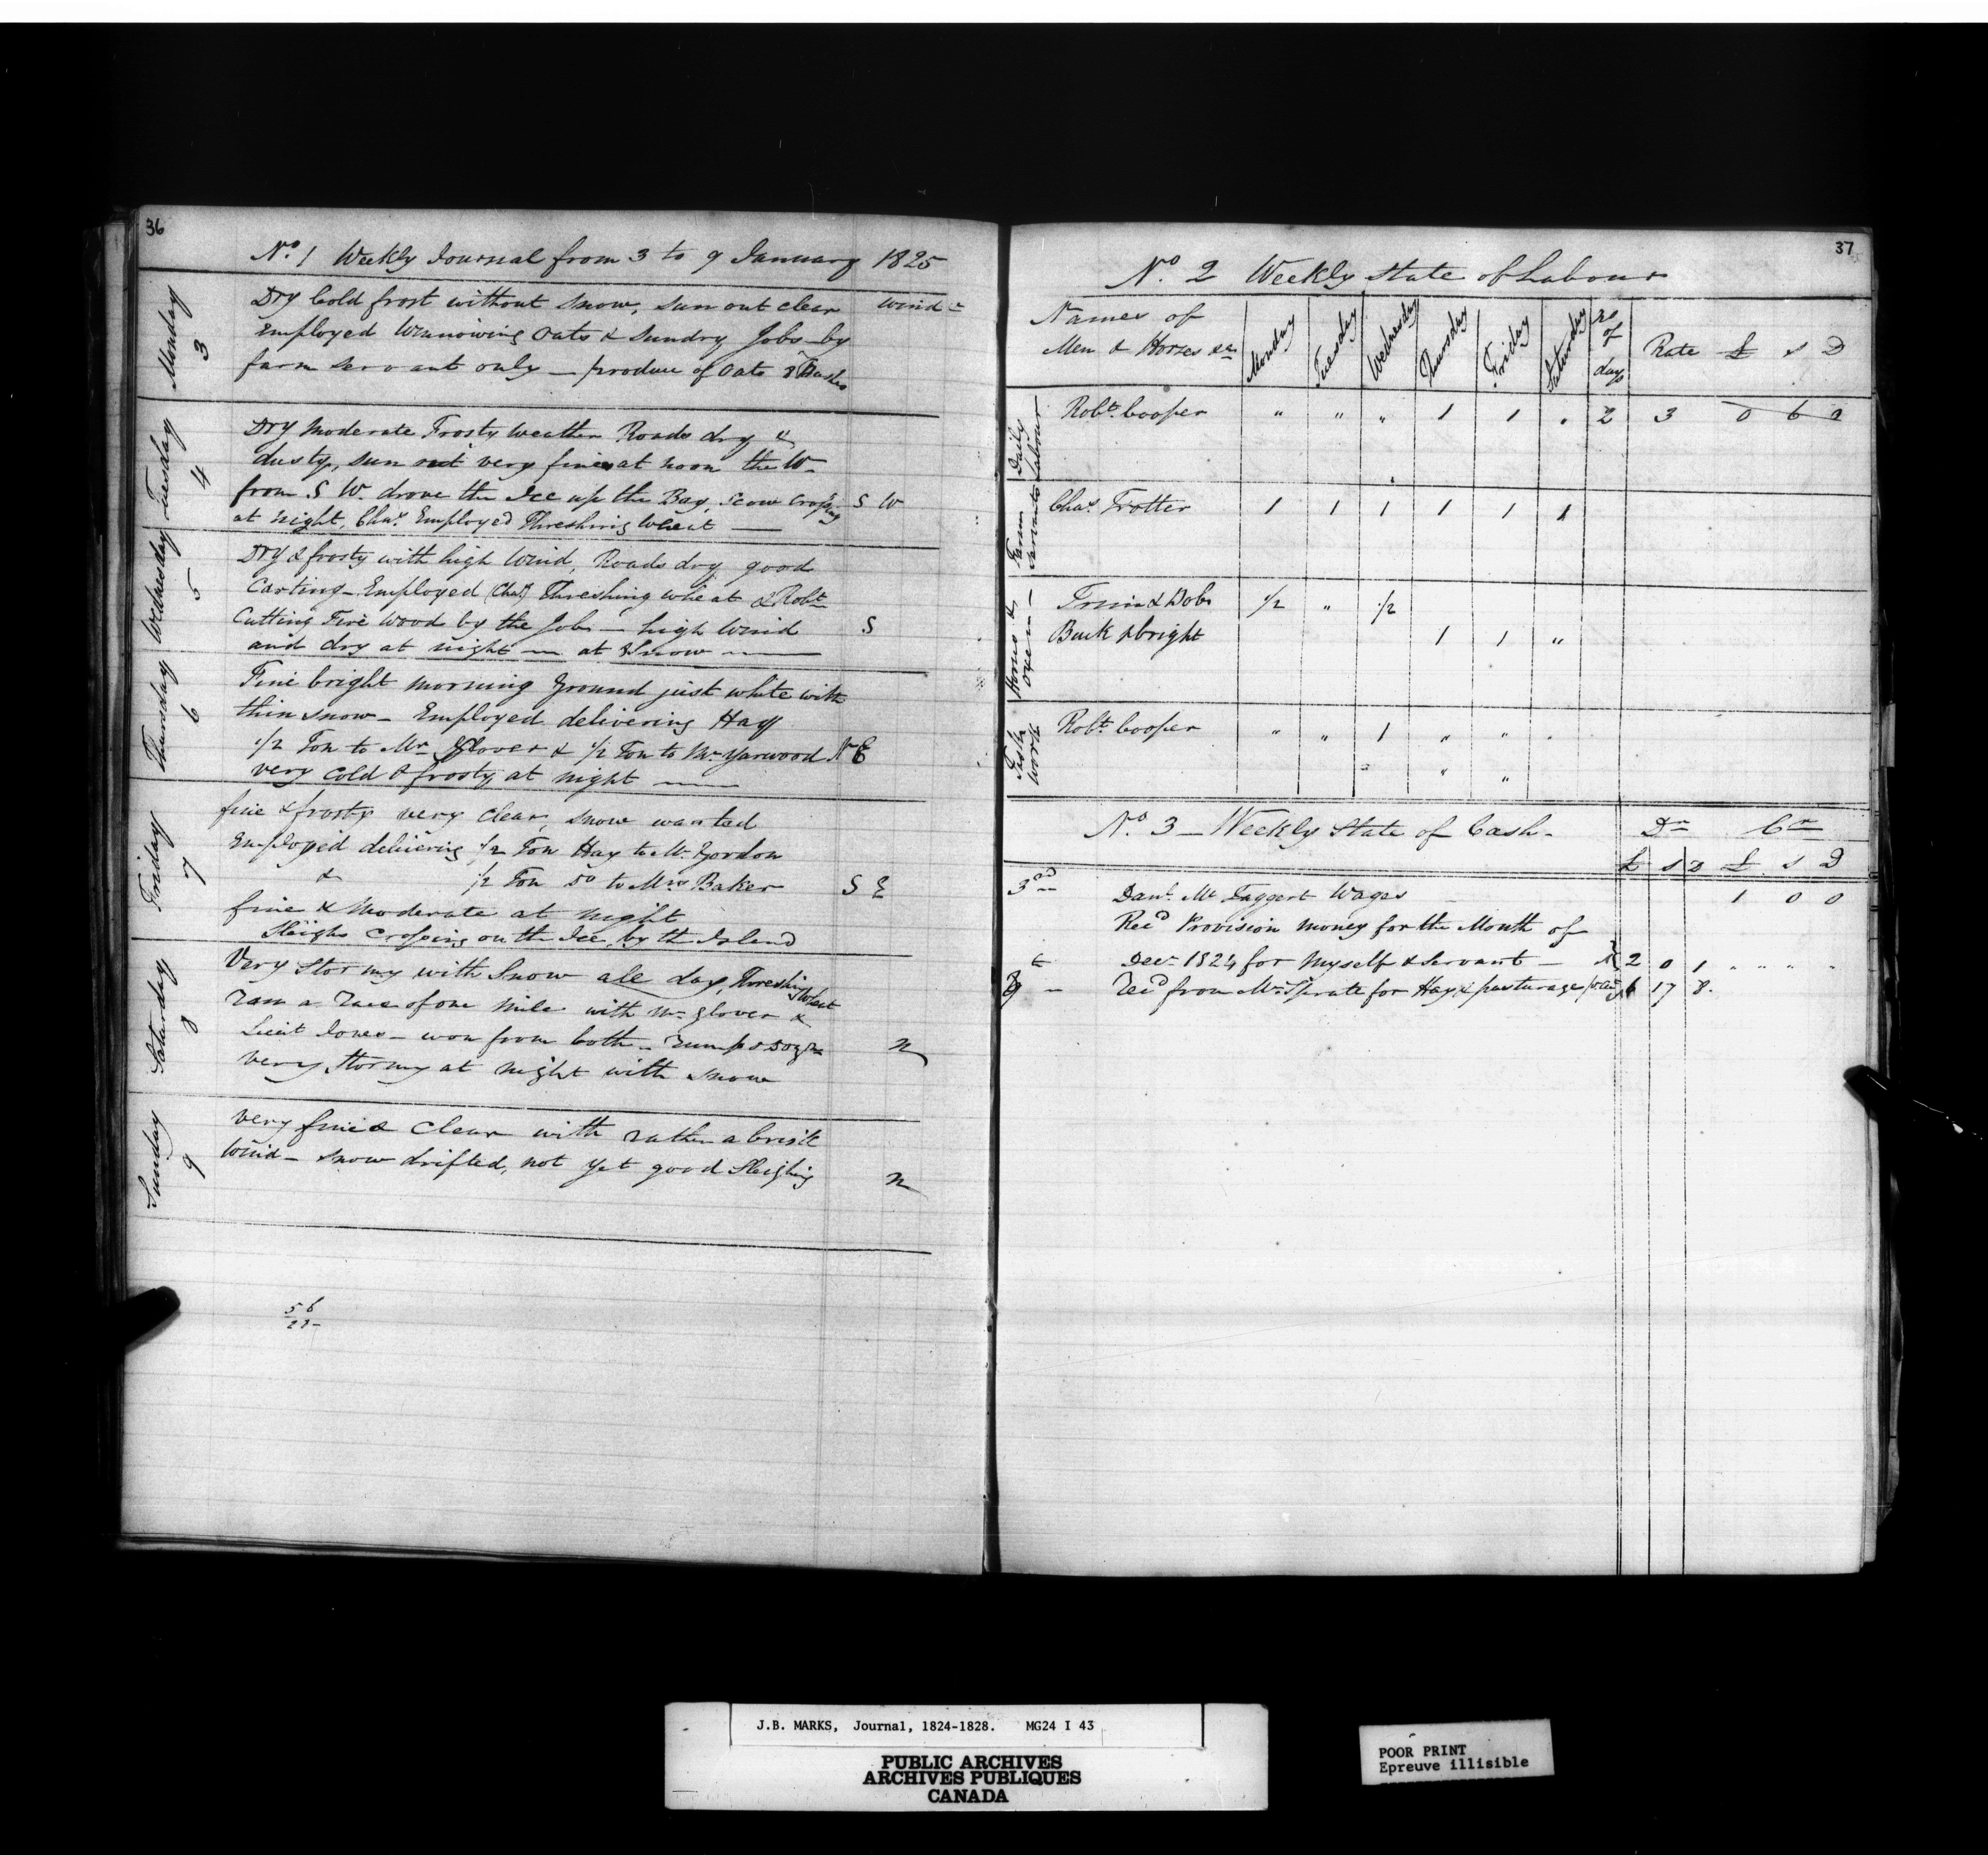 36
No. 1 Weekly Journal from 3 to 9 January 1825
Monday 3
Dry Cold frost without snow, sun out clear wind
Employed Winnowing Oats & Sundry Jobs by
farm servant only — produce of Oats 8 Bushes
Tuesday 4
Dry Moderate Frosty Weather Roads dry &
dusty, sun out very fine at noon the W
from S W. drove the Ice up the Bay, Scow Crossing S W
at night, Chas. Employed Threshing Wheat —
Wednesday 5
Dry & frosty with high Wind, Roads dry good
Carting — Employed (Chas) Threshing wheat & Robt
Cutting Fire Wood by the Job — high Wind S
and dry at night — at Snow —
Thursday 6
Fine bright morning ground just white with
thin snow — Employed delivering Hay
1/2 Ton to Mr Glover & 1/2 Ton to Mr Yarwood N E
very cold & frosty at night —
Friday 7
fine & frosty very clear, snow wanted
Employed delivering 1/2 Ton Hay to Mr Gordon
& 1/2 Ton Do to Mrs Baker S E
fine & Moderate at night
Sleighs Crossing on the Ice by the Island
Saturday 8
Very Stormy with Snow all day, Threshing Wheat
ran a race of one Mile with Mr Glover &
Lieut Jones — won from both — rump & dozn N
very Stormy at night with snow
Sunday 9
very fine & Clear with rather a brisk
Wind — snow drifted, not yet good Sleighing N
37
No. 2 Weekly State of Labour
Names of
Men & Horses &c Monday Tuesday Wednesday Thursday Friday Saturday No of days Rate £ S D
Daily Labour
Robt. Cooper " " " 1 1 " 2 3 0 6 0
Farm Servants
Chas. Trotter 1 1 1 1 1 1
Horses & Oxen
Trim & Bobs 1/2 " 1/2
Buck & bright 1 1 "
Task Work
Robt. Cooper " " 1 " " "
" " "
No. 3 — Weekly State of Cash — Dr Cr
£ S D £ S D
3rd Danl. Mc Taggert Wages 1 0 0
Recd Provision money for the Month of
Decr 1824 for Myself & Servant — 2 0 1 " " "
Recd from Mr Spratt for Hay & pasturage 6 17 8.
J.B. MARKS, Journal, 1824-1828. MG24 I 43
PUBLIC ARCHIVES
ARCHIVES PUBLIQUES
CANADA
POOR PRINT
Epreuve illisible